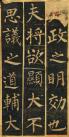 政之明効也
夫將欲顯大不
思議之道輔大